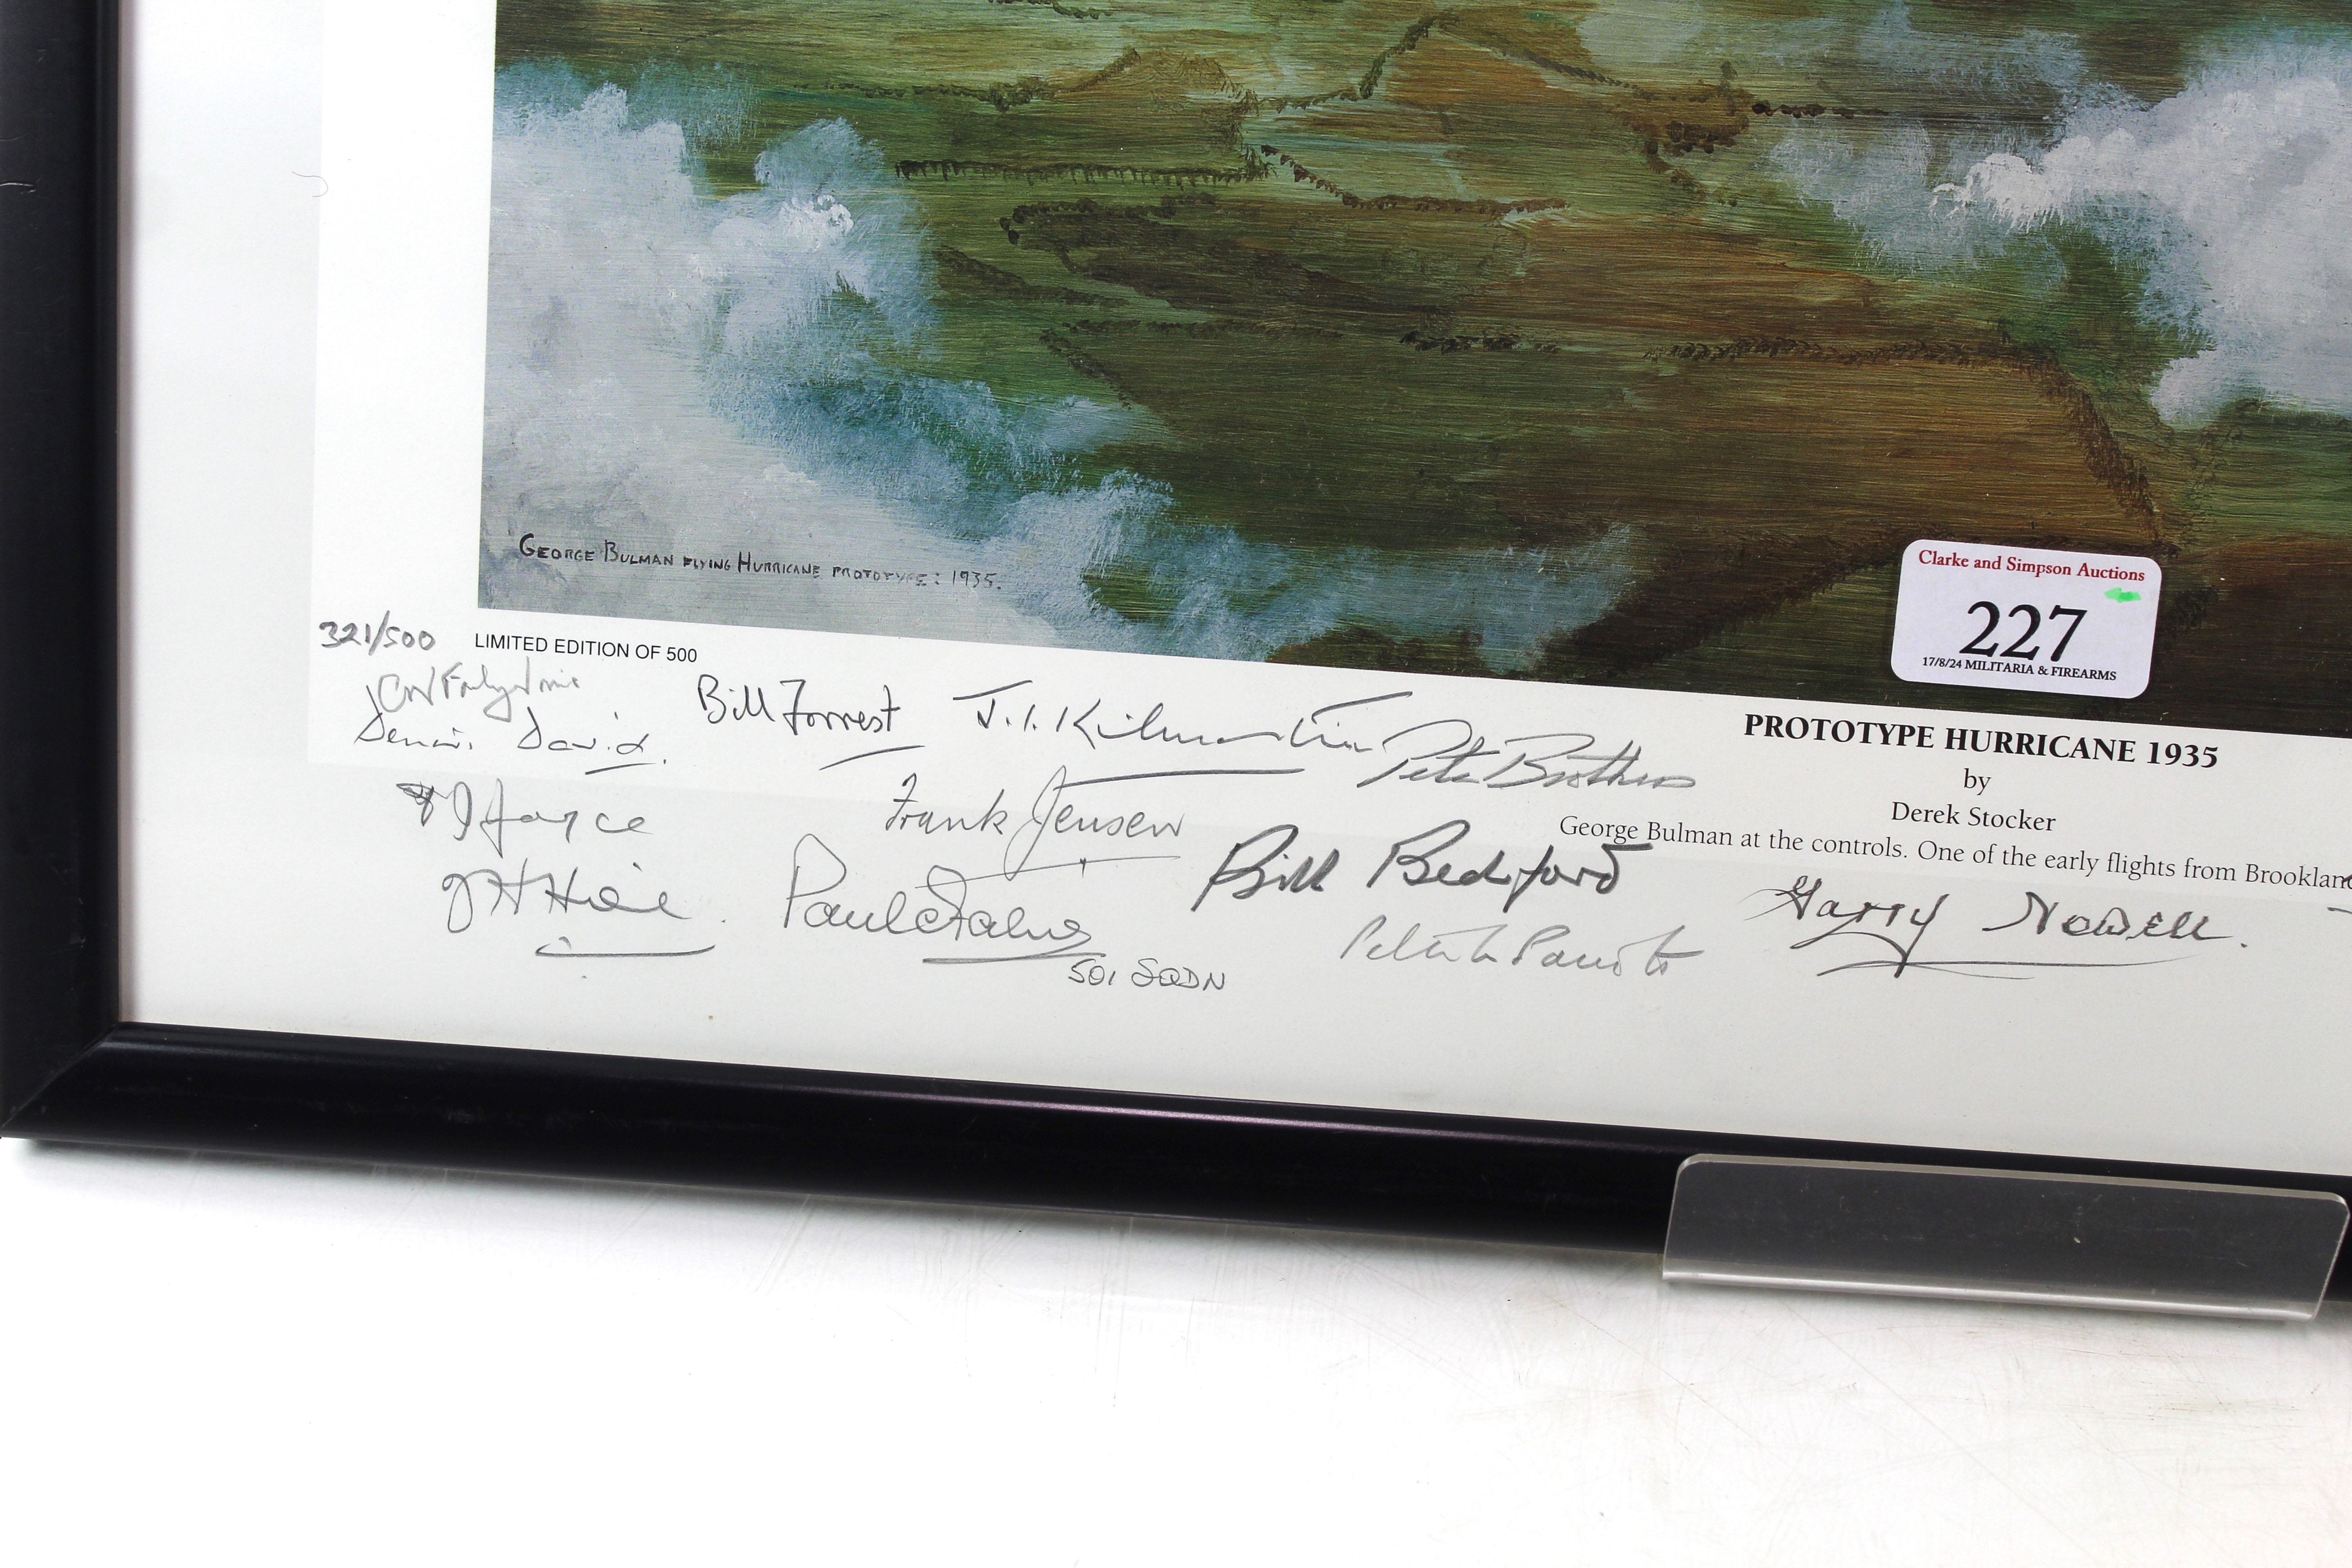 GEORGE BULMAN FLYING HURRICANE PROTOTYPE: 1935.
Clarke and Simpson Auctions
227
17/8/24 MILITARIA & FIREARMS
321/500
LIMITED EDITION OF 500
PROTOTYPE HURRICANE 1935
by
Derek Stocker
George Bulman at the controls. One of the early flights from Brooklan
Dennis David.
Bill Forrest
J.I. Kilmartin
Pete Brothers
Joyce
Frank Jensen
Bill Bedford
Harry Newell.
Paul
501 SQDN
Peter